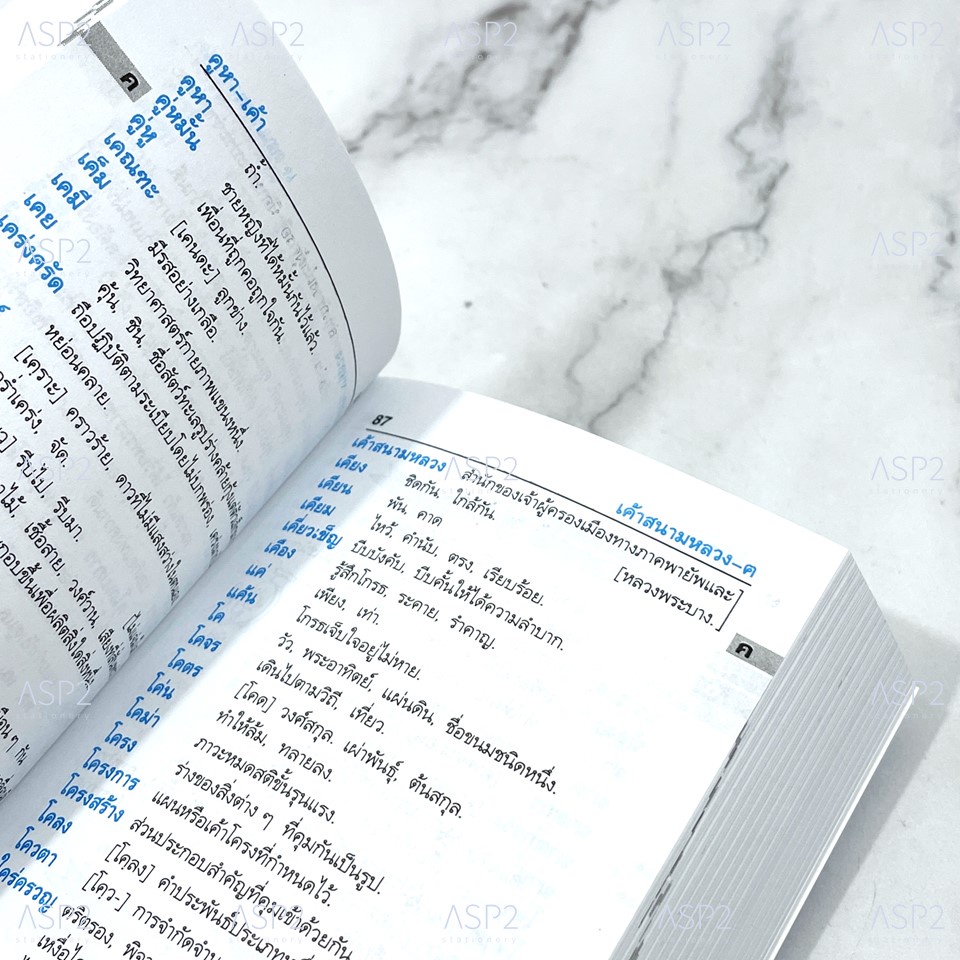 ค
คูหา-เค้า
คูหา ถ้ำ.
คู่หมั้น ชายหญิงที่ได้หมั้นกันไว้แล้ว.
คู่หู เพื่อนที่ถูกคอถูกใจกัน.
เคณฑะ [เคนดะ] ลูกช่าง.
เค็ม มีรสอย่างเกลือ.
เคมี วิทยาศาสตร์กายภาพแขนงหนึ่ง.
เคย คุ้น, ชิน, ชื่อสัตว์ทะเลรูปร่างคล้ายกุ้งแต่ตัวเล็ก
เคร่งครัด ถือปฏิบัติตามระเบียบโดยไม่บกพร่อง,
หย่อนคลาย.
[เคฺราะ] คราวร้าย, ดาวที่ไม่มีแสงสว่างในตัว
คร่ำเคร่ง, จัด.
รีบไป, รีบมา.
เชื้อสาย, วงศ์วาน
87
เค้าสนามหลวง-ค
เค้าสนามหลวง สำนักของเจ้าผู้ครองเมืองทางภาคพายัพและ
[หลวงพระบาง.]
เคียง ชิดกัน, ใกล้กัน.
เคียน พัน, คาด
เคียม ไหว้, คำนับ, ตรง, เรียบร้อย.
เคี่ยวเข็ญ บีบบังคับ, บีบคั้นให้ได้ความลำบาก.
เคือง รู้สึกโกรธ, ระคาย, รำคาญ.
แค่ เพียง, เท่า.
แค้น โกรธเจ็บใจอยู่ไม่หาย.
โค วัว, พระอาทิตย์, แผ่นดิน, ชื่อขนมชนิดหนึ่ง.
โคจร เดินไปตามวิถี, เที่ยว.
โคตร [โคด] วงศ์สกุล, เผ่าพันธุ์, ต้นสกุล.
โค่น ทำให้ล้ม, ทลายลง.
โคม่า ภาวะหมดสติขั้นรุนแรง.
โครง ร่างของสิ่งต่าง ๆ ที่คุมกันเป็นรูป.
โครงการ แผนหรือเค้าโครงที่กำหนดไว้.
โครงสร้าง ส่วนประกอบสำคัญที่คุมเข้าด้วยกัน
โคลง [โคฺลง] คำประพันธ์ประเภท
โควตา [โคว-] การจำกัด
ใคร่ครวญ ตริตรอง,
ค
ASP2
stationery